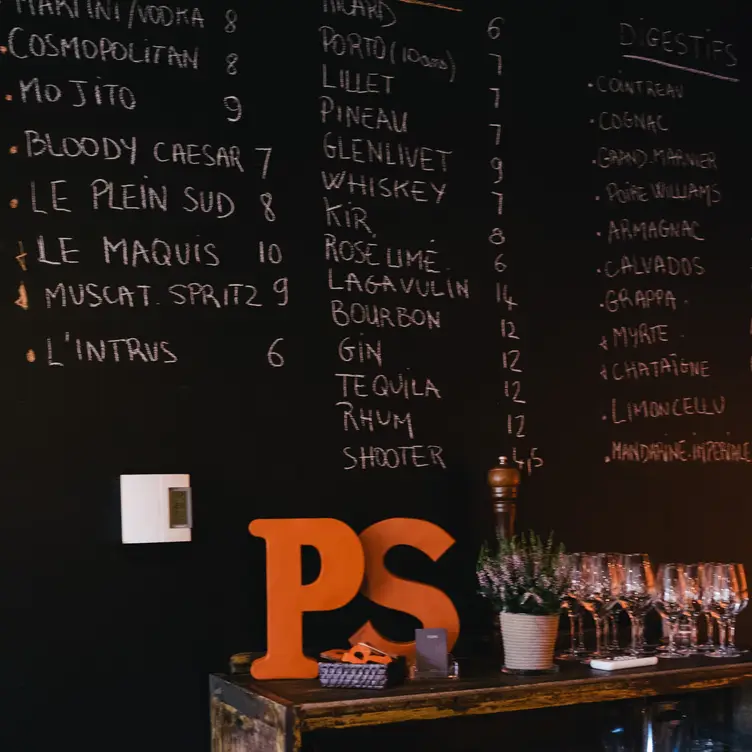 MARTINI/VODKA 8
• COSMOPOLITAN 8
• MOJITO 9
• BLOODY CAESAR 7
• LE PLEIN SUD 8
LE MAQUIS 10
MUSCAT. SPRITZ 9
• L'INTRUS 6
RICARD 6
PORTO (10ans) 7
LILLET 7
PINEAU 7
GLENLIVET 9
WHISKEY 7
KIR 8
ROSÉ LIMÉ 6
LAGAVULIN 14
BOURBON 12
GIN 12
TEQUILA 12
RHUM 12
SHOOTER 4,5
DIGESTIFS
• COINTREAU
• COGNAC
• GRAND-MARNIER
• POIRE WILLIAMS
• ARMAGNAC
• CALVADOS
• GRAPPA
• MYRTE
• CHATAÎGNE
• LIMONCELLU
• MANDARINE IMPÉRIALE
PS